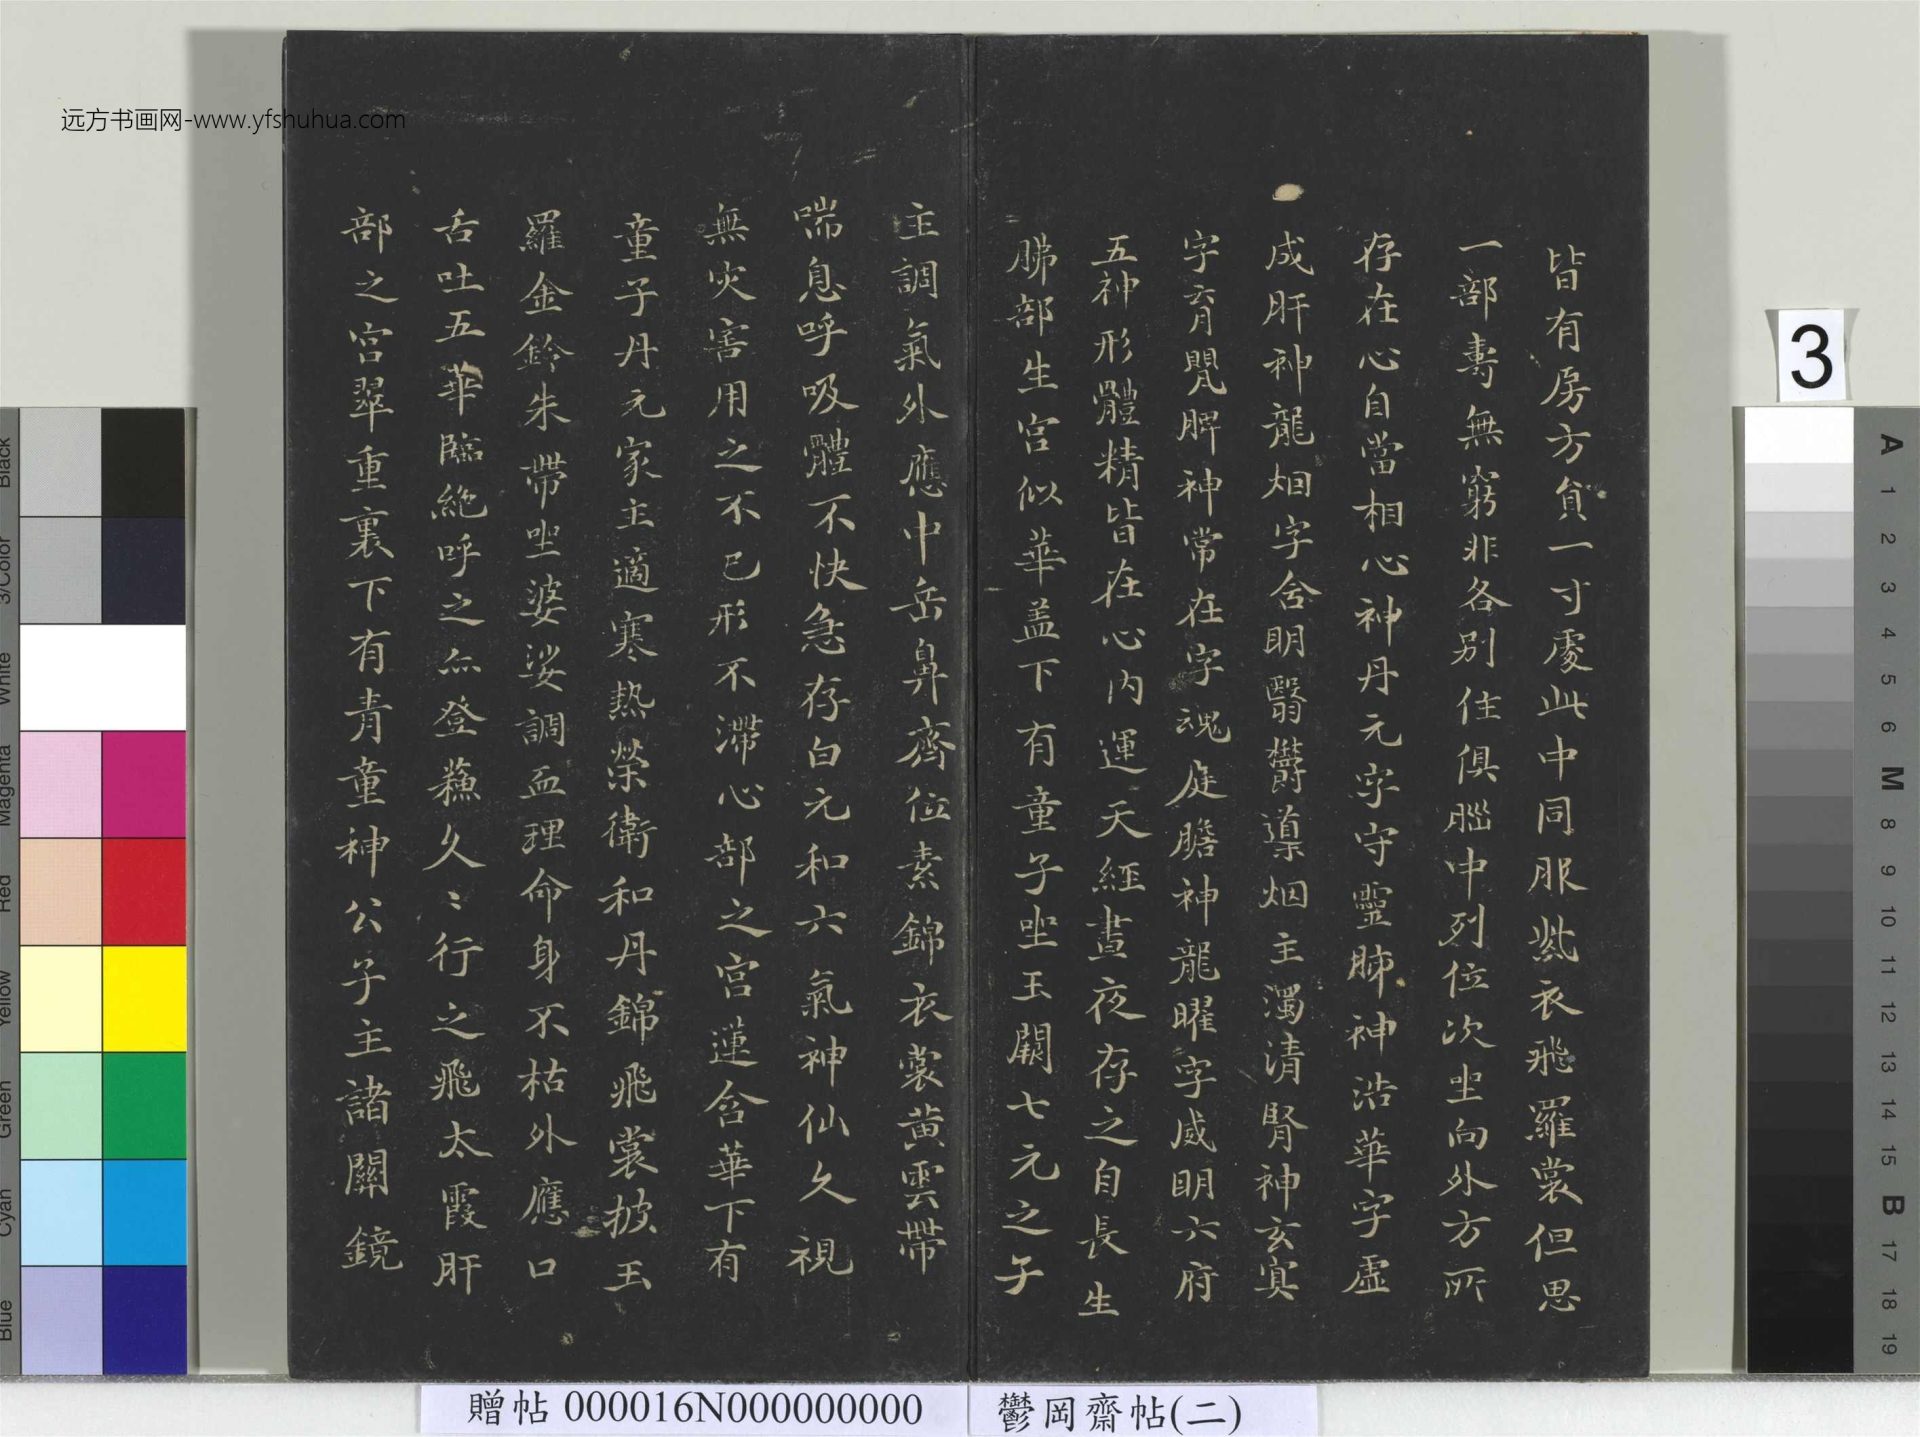 皆有房方員一寸處此中同服紫衣飛羅裳但思
一部壽無窮非各別住俱腦中列位次坐向外方所
存在心自當相心神丹元字守靈肺神浩華字虛
成肝神龍烟字含明翳鬱導烟主濁清腎神玄冥
字育嬰脾神常在字魂庭膽神龍曜字威明六府
五神形體精皆在心內運天經晝夜存之自長生
肺部生宮似華蓋下有童子坐玉闕七元之子
主調氣外應中岳鼻齊位素錦衣裳黃雲帶
喘息呼吸體不快急存白元和六氣神仙久視
無灾害用之不已形不滯心部之宮蓮含華下有
童子丹元家主適寒熱榮衛和丹錦飛裳披玉
羅金鈴朱帶坐婆娑調血理命身不枯外應口
舌吐五華臨絕呼之亦登蘓久〻行之飛太霞肝
部之宮翠重裏下有青童神公子主諸關鏡
贈帖 000016N000000000
鬱岡齋帖(二)
远方书画网-www.yfshuhua.com
3
Black
3/Color
White
Magenta
Red
Yellow
Green
Cyan
Blue
A
1
2
3
4
5
6
M
8
9
10
11
12
13
14
15
B
17
18
19